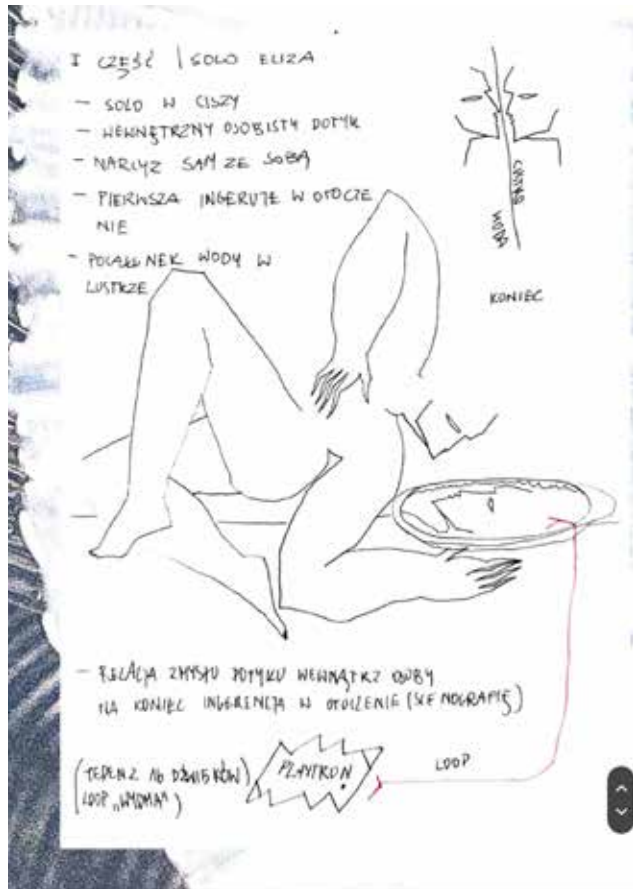 I CZĘŚĆ | SOLO ELIZA
- SOLO W CISZY
- WEWNĘTRZNY OSOBISTY DOTYK
- NARCYZ SAM ZE SOBĄ
- PIERWSZA INGERUJE W OTOCZE
NIE
- POCAŁUNEK WODY W
LUSTRZE
WODA
KONIEC
- RELACJA ZMYSŁU DOTYKU WEWNĄTRZ OSOBY
NA KONIEC INGERENCJA W OTOCZENIE (SCENOGRAFIĘ)
(JEDEN Z 16 DŹWIĘKÓW)
LOOP „WYDMA")
PLAYTRON
LOOP